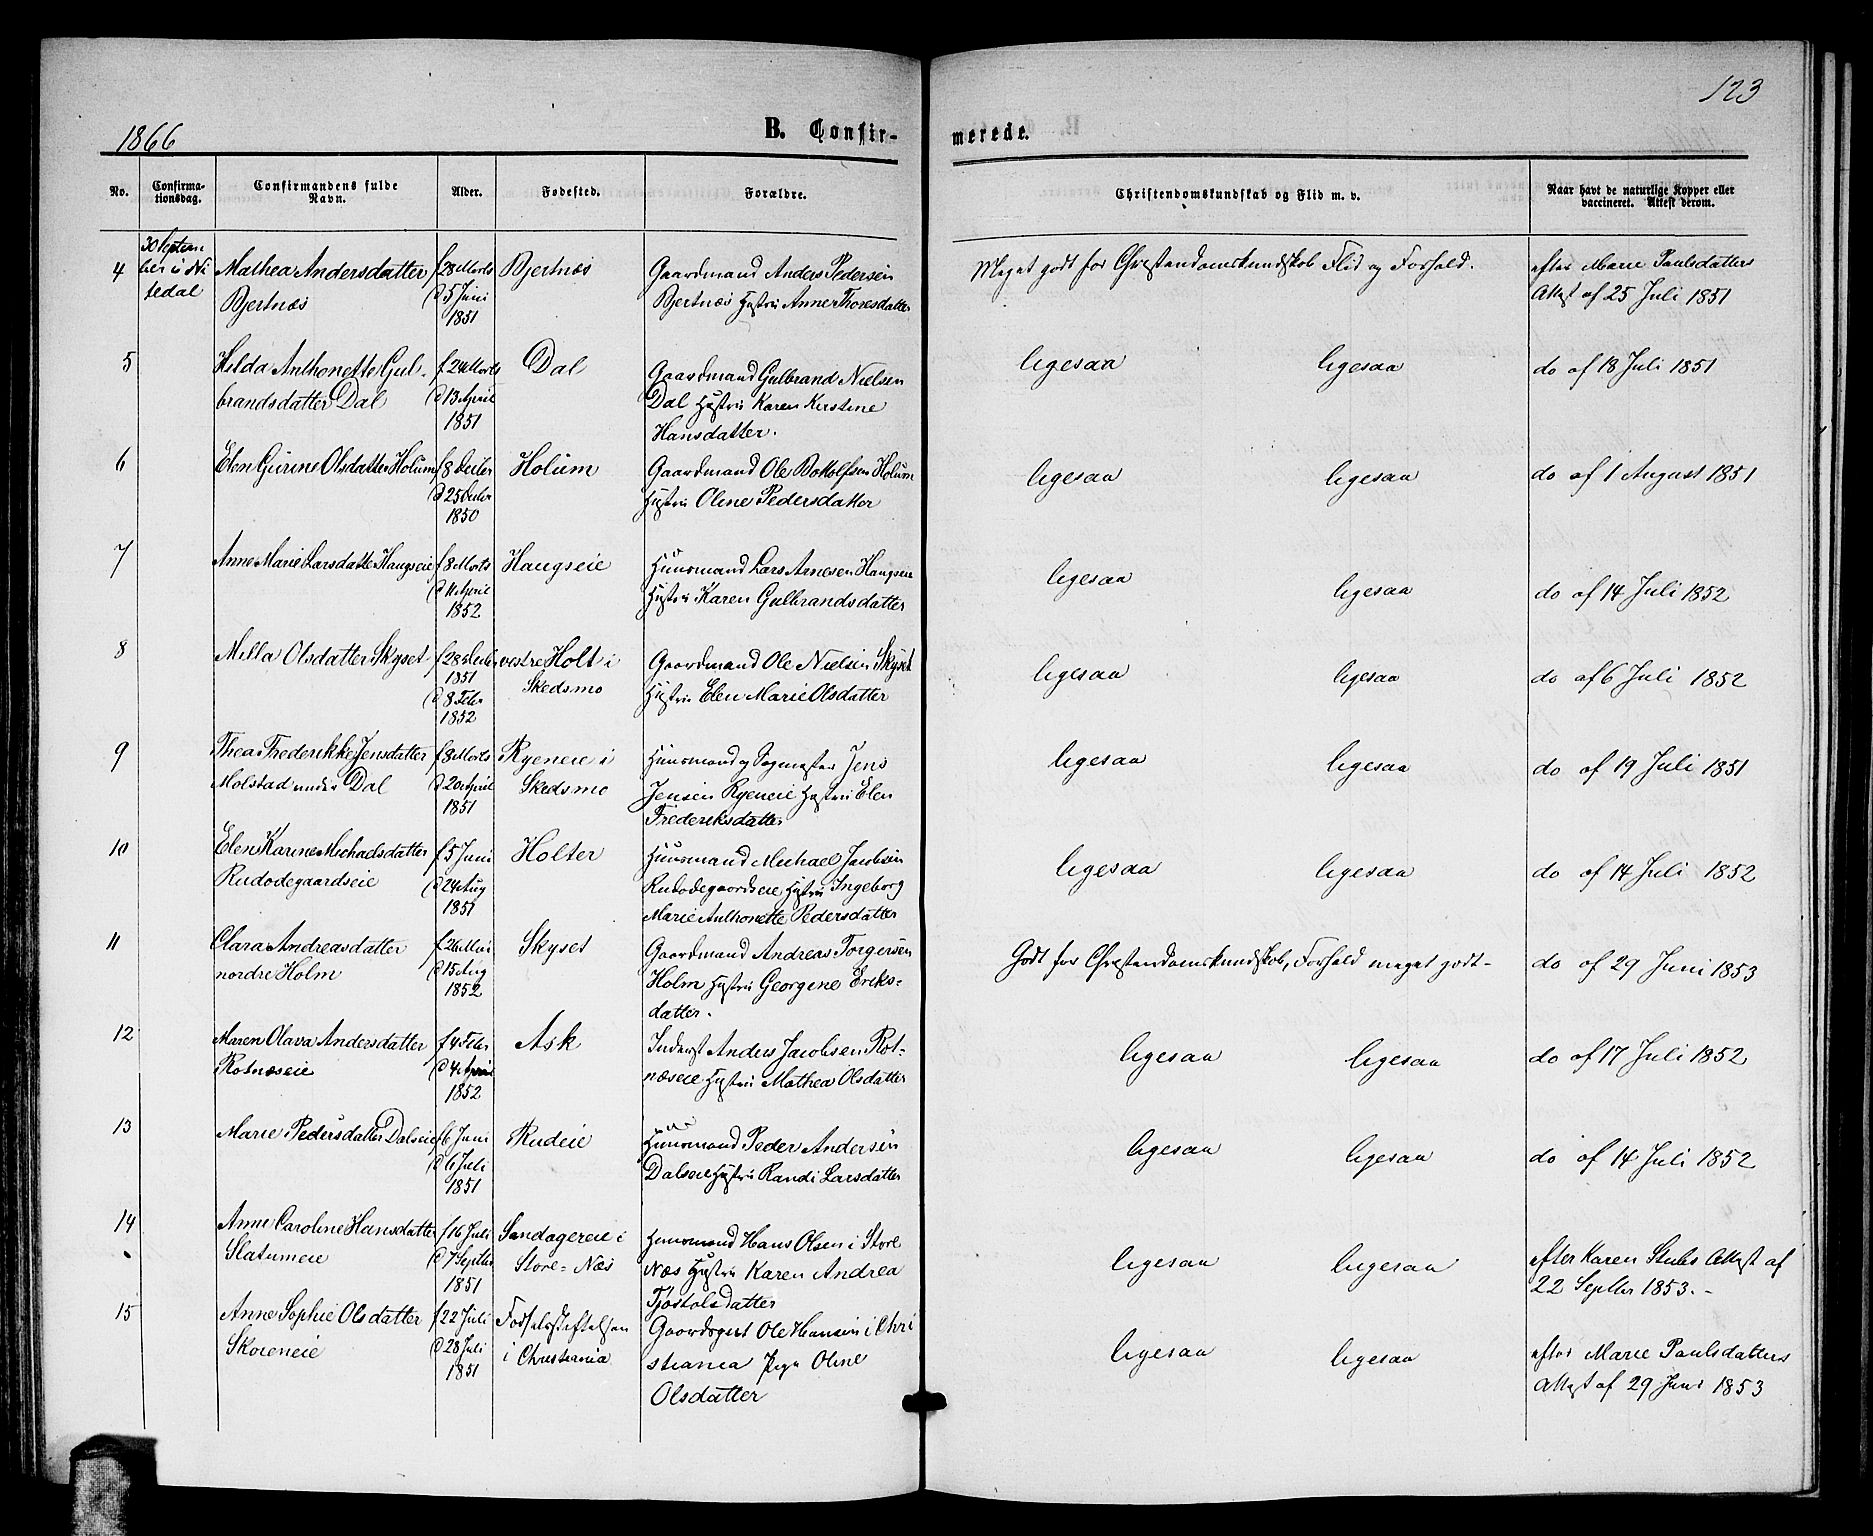 123
1866
B. Confir-
merede.
No.
Confirma-
tionsdag.
Confirmandens fulde
Navn.
Alder.
Fødested.
Forældre.
Christendomskundskab og Flid m. v.
Naar havt de naturlige Kopper eller
vaccineret. Attest derom.
30 Septem-
ber i Ni
tedal
4
Mathea Andersdatter
Bjertnæs
f 28 Marts
d 5 Juni
1851
Bjertnæs
Gaardmand Anders Pedersen
Bjertnæs Hustru Anne Thoresdatter
Meget godt for Christendomskundskab Flid og Forhold.
efter Marie Paulsdatters
Attest af 25 Juli 1851
5
Hilda Anthonette Gul-
brandsdatter Dal
f 24 Marts
d 13 April
1851
Dal
Gaardmand Gulbrand Nielsen
Dal Hustru Karen Kirstine
Hansdatter.
ligesaa
ligesaa
do af 18 Juli 1851
6
Elen Gurine Olsdatter Holum
f 8 Decbr
d 25 Decbr
1850
Holum
Gaardmand Ole Botholfsen Holum
Hustru Oline Pedersdatter
ligesaa
ligesaa
do af 1 August 1851
7
Anne Marie Larsdatter Haugseie
f 8 Marts
d 11 April
1852
Haugseie
Huusmand Lars Arnesen Haugseie
Hustru Karen Gulbrandsdatter
ligesaa
ligesaa
do af 14 Juli 1852
8
Milla Olsdatter Skyset
f 28 Decbr
1851
d 8 Febr
1852
vestre Holt i
Skedsmo
Gaardmand Ole Nielsen Skyset
Hustru Elen Marie Olsdatter
ligesaa
ligesaa
do af 6 Juli 1852
9
Thea Frederikke Jensdatter
Molstad under Dal
f 8 Marts
d 20 April
1851
Ryeneie i
Skedsmo
Huusmand og Sagmester Jens
Jensen Ryeneie Hustru Elen
Frederiksdatter
ligesaa
ligesaa
do af 19 Juli 1851
10
Elen Karine Michaelsdatter
Rudødegaardseie
f 5 Juni
d 24 Aug
1851
Holter
Huusmand Michael Jacobsen
Rudødegaardseie Hustru Ingeborg
Marie Anthonette Pedersdatter
ligesaa
ligesaa
do af 14 Juli 1852
11
Clara Andreasdatter
nordre Holm
f 26 Mai
d 15 Aug
1852
Skyset
Gaardmand Andreas Torgersen
Holm Hustru Georgine Eriks-
datter.
Godt for Christendomskundskab, Forhold meget godt-
do af 29 Juni 1853
12
Maren Olava Andersdatter
Rotnæseie
f 4 Febr
d 4 April
1852
Ask
Inderst Anders Jacobsen Rot-
næseie Hustru Mathea Olsdatter
ligesaa
ligesaa
do af 17 Juli 1852
13
Marie Pedersdatter Dalseie
f 6 Juni
d 6 Juli
1851
Rudeie
Huusmand Peder Andersen
Dalseie Hustru Randi Larsdatter
ligesaa
ligesaa
do af 14 Juli 1852
14
Anne Caroline Hansdatter
Slatumeie
f 16 Juli
d 7 Septbr
1851
Sandagereie i
Store-Næs
Huusmand Hans Olsen i Store
Næs Hustru Karen Andrea
Tjostolsdatter
ligesaa
ligesaa
efter Karen Stubs Attest af
22 Septbr 1853.-
15
Anne Sophie Olsdatter
Skøieneie
f 22 Juli
d 28 Juli
1851
Fødselsstiftelsen
i Christiania
Gaardsgut Ole Hansen i Chri
stiania Pige Oline
Olsdatter
ligesaa
ligesaa
efter Marie Paulsdatters
Attest af 29 Juni 1853